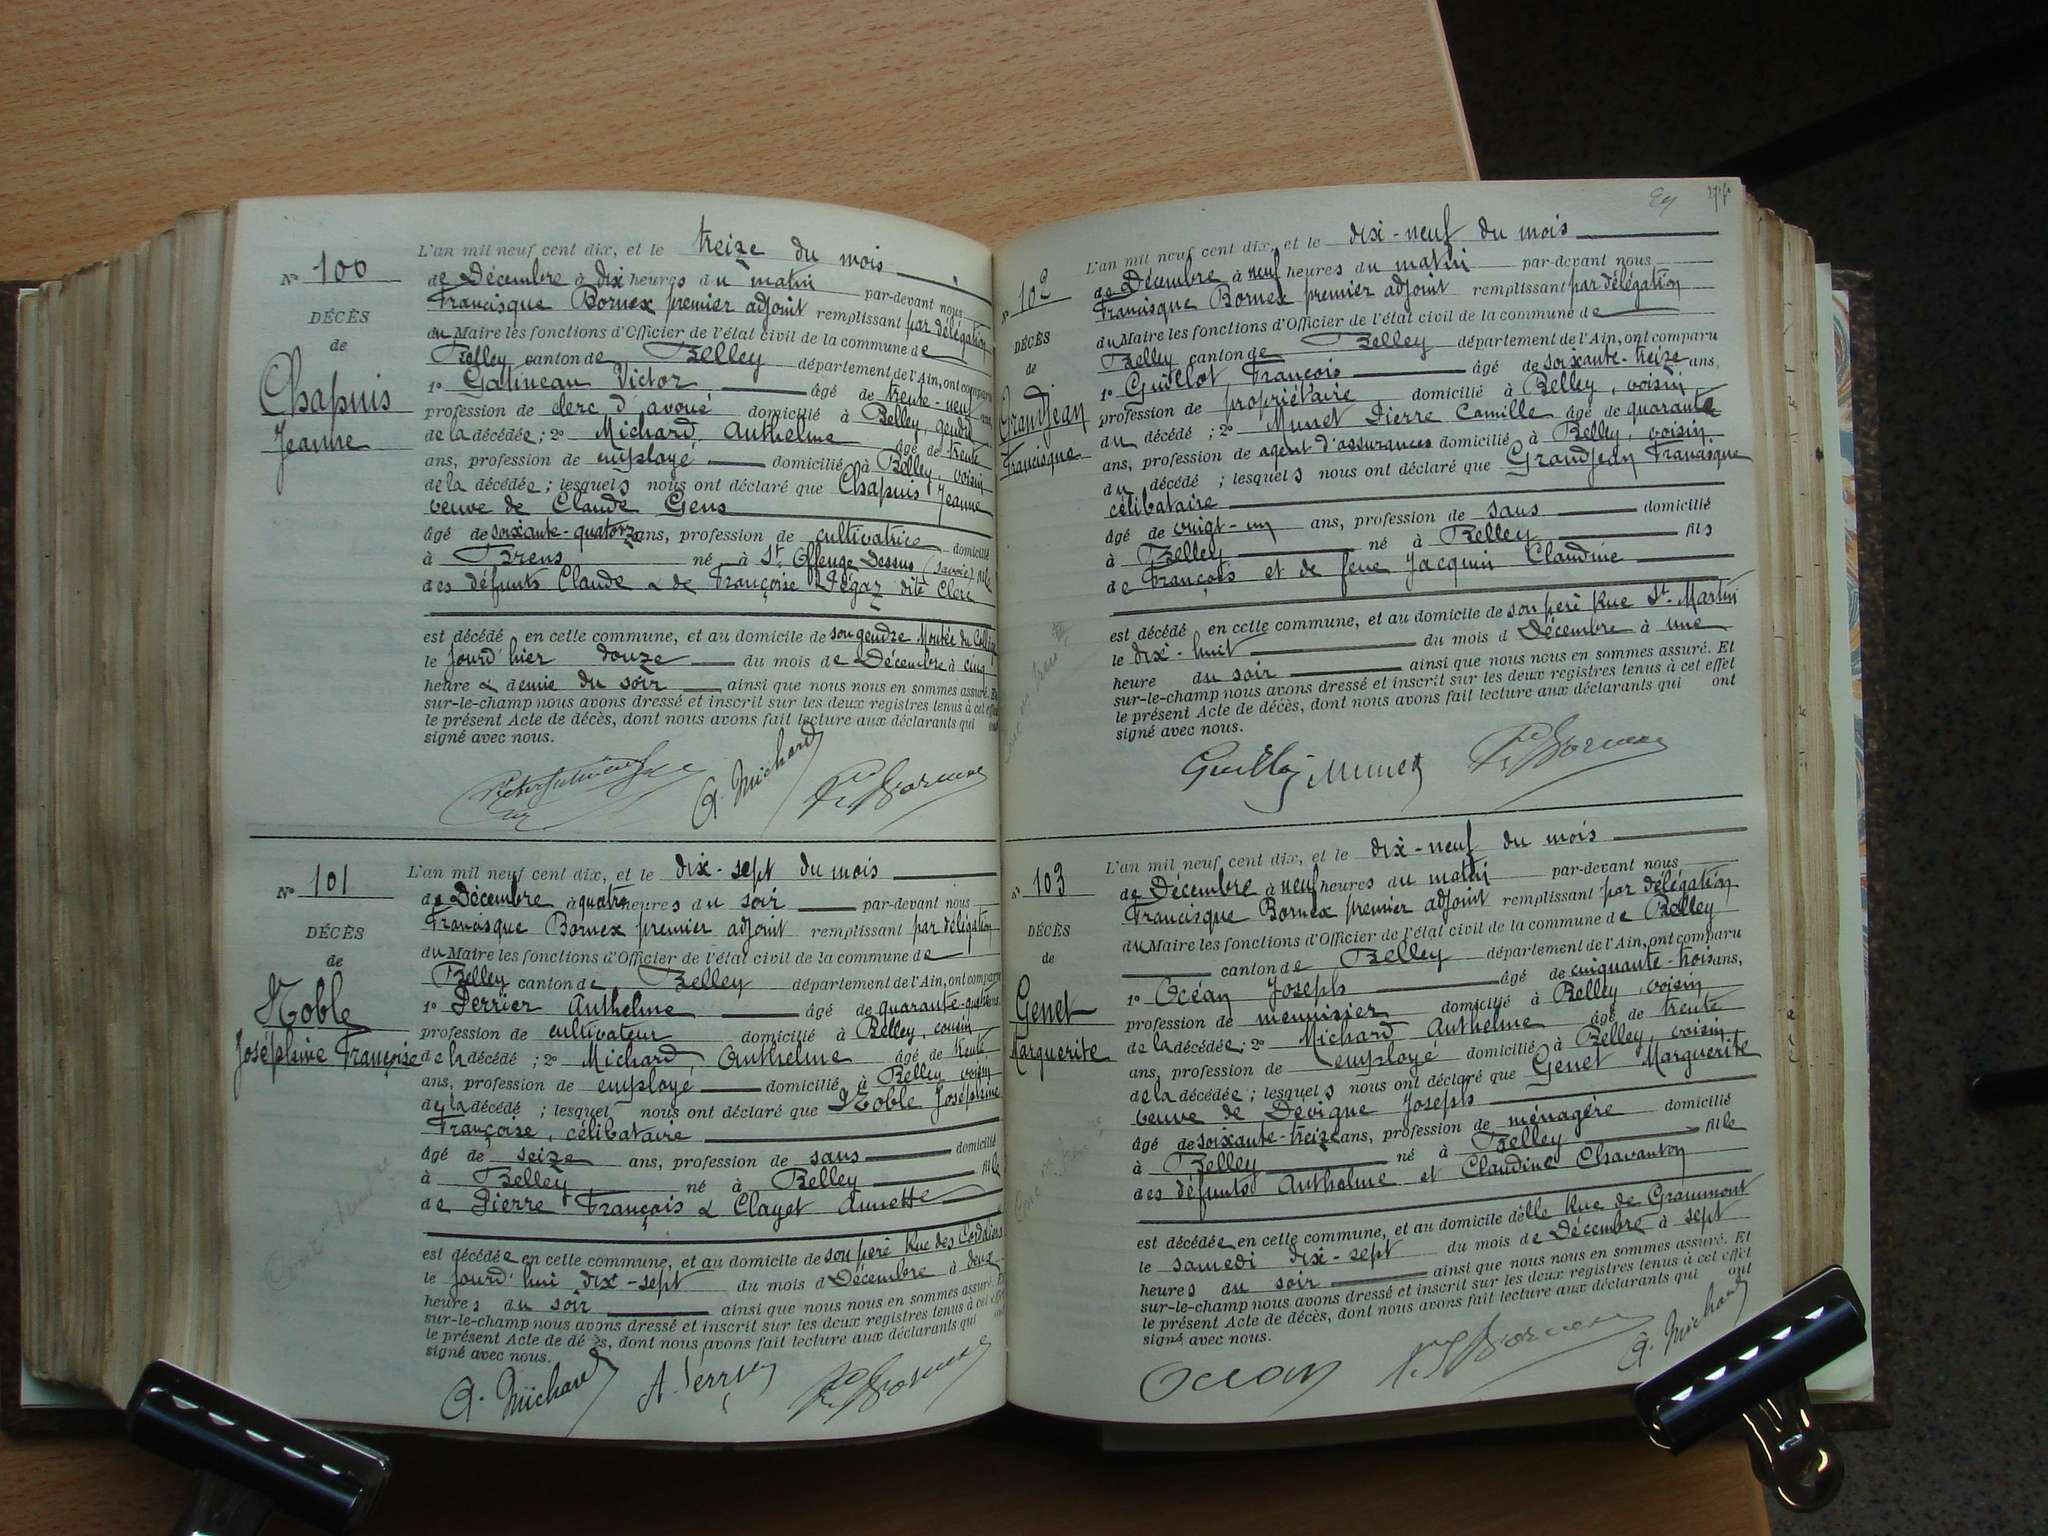 L'an mil neuf cent dix, et le treize du mois
Nº 100
de Décembre à dix heures du matin par-devant nous
Francisque Bornex premier adjoint remplissant par délégation
DÉCÈS
du Maire les fonctions d'Officier de l'état civil de la commune de
de
Belley canton de Belley département de l'Ain, ont comparu
Chapuis
Jeanne
1º Galineau Victor âgé de trente-neuf ans,
profession de clerc d'avoué domicilié à Belley, gendre
de la décédée ; 2º Michard Anthelme âgé de trente
ans, profession de employé domicilié à Belley, voisin
de la décédée ; lesquels nous ont déclaré que Chapuis Jeanne
veuve de Claude Gens
âgé de soixante-quatorze ans, profession de cultivatrice domicilié
à Brens né à St Offenge Dessus (Savoie) fille
des défunts Claude & de Françoise Pégaz dite Clerc
est décédé en cette commune, et au domicile de son gendre Montée du Collège
le jourd'hier douze du mois de Décembre à cinq
heure & demie du soir ainsi que nous nous en sommes assuré. Et
sur-le-champ nous avons dressé et inscrit sur les deux registres tenus à cet effet
le présent Acte de décès, dont nous avons fait lecture aux déclarants qui ont
signé avec nous.
A. Michard
Fe Bornex
L'an mil neuf cent dix, et le dix-sept du mois
Nº 101
de Décembre à quatre heures du soir par-devant nous
Francisque Bornex premier adjoint remplissant par délégation
DÉCÈS
du Maire les fonctions d'Officier de l'état civil de la commune de
de
Belley canton de Belley département de l'Ain, ont comparu
Noble
Joséphine Françoise
1º Perrier Anthelme âgé de quarante-quatre ans,
profession de cultivateur domicilié à Belley, cousin
de la décédé ; 2º Michard, Anthelme âgé de trente
ans, profession de employé domicilié à Belley voisin
de la décédé ; lesquel nous ont déclaré que Noble Joséphine
Françoise, célibataire
âgé de seize ans, profession de sans domicilié
à Belley né à Belley fille
de Pierre François & Clayet Annette
est décédée en cette commune, et au domicile de son père Rue des Cordeliers
le jourd'hui dix-sept du mois d Décembre à deux
heures du soir ainsi que nous nous en sommes assuré. Et
sur-le-champ nous avons dressé et inscrit sur les deux registres tenus à cet effet
le présent Acte de décès, dont nous avons fait lecture aux déclarants qui ont
signé avec nous.
A. Michard A. Perrier Fe Bornex
L'an mil neuf cent dix, et le dix-neuf du mois
Nº 102
de Décembre à neuf heures du matin par-devant nous
Francisque Bornex premier adjoint remplissant par délégation
DÉCÈS
du Maire les fonctions d'Officier de l'état civil de la commune de
de
Belley canton de Belley département de l'Ain, ont comparu
Grandjean
Francisque
1º Guillot François âgé de soixante-treize ans,
profession de propriétaire domicilié à Belley, voisin
du décédé ; 2º Munet Pierre Camille âgé de quarante
ans, profession de agent d'assurances domicilié à Belley, voisin
du décédé ; lesquels nous ont déclaré que Grandjean Francisque
célibataire
âgé de vingt-un ans, profession de sans domicilié
à Belley né à Belley fils
de François et de feue Jacquin Claudine
est décédé en cette commune, et au domicile de son père Rue St. Martin
le dix-huit du mois d Décembre à une
heure du soir ainsi que nous nous en sommes assuré. Et
sur-le-champ nous avons dressé et inscrit sur les deux registres tenus à cet effet
le présent Acte de décès, dont nous avons fait lecture aux déclarants qui ont
signé avec nous.
Guillot Munet Fe Bornex
L'an mil neuf cent dix, et le dix-neuf du mois
Nº 103
de Décembre à neuf heures du matin par-devant nous
Francisque Bornex premier adjoint remplissant par délégation
DÉCÈS
du Maire les fonctions d'Officier de l'état civil de la commune de Belley
de
canton de Belley département de l'Ain, ont comparu
Genet
Marguerite
1º Océan Joseph âgé de cinquante-trois ans,
profession de menuisier domicilié à Belley, voisin
de la décédée ; 2º Michard Anthelme âgé de trente
ans, profession de employé domicilié à Belley, voisin
de la décédée ; lesquels nous ont déclaré que Genet Marguerite
veuve de Devigne Joseph
âgé de soixante-treize ans, profession de ménagère domicilié
à Belley né à Belley fille
des défunts Anthelme et Claudine Chavanton
est décédée en cette commune, et au domicile d'elle Rue de Grammont
le samedi dix-sept du mois de Décembre à sept
heures du soir ainsi que nous nous en sommes assuré. Et
sur-le-champ nous avons dressé et inscrit sur les deux registres tenus à cet effet
le présent Acte de décès, dont nous avons fait lecture aux déclarants qui ont
signé avec nous.
Océan Fe Bornex A. Michard